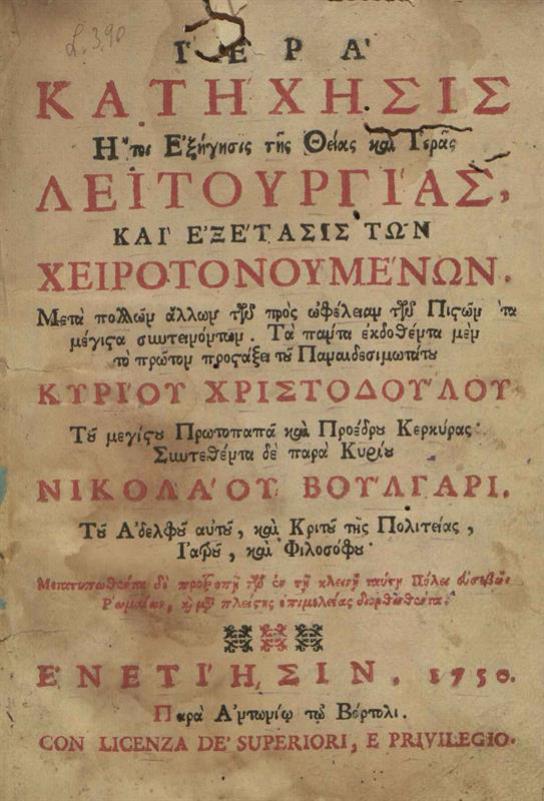 L. 3.90
ΙΕΡΑ'
ΚΑΤΗ'ΧΗΣΙΣ
Η῎τοι Ε'ξήγησις τῆς Θείας καὶ Ι'ερᾶς
ΛΕΙΤΟΥΡΓΙ'ΑΣ,
ΚΑΙ' Ε'ΞΕ'ΤΑΣΙΣ ΤΩ͂Ν
ΧΕΙΡΟΤΟΝΟΥΜΕ'ΝΩΝ.
Μετὰ πολλῶν ἄλλων τῶν πρὸς ὠφέλειαν τῶν Πιςῶν τὰ
μέγιςα συντεινόντων. Τὰ πάντα ἐκδοθέντα μὲν
τὸ πρῶτον προςάξει τοῦ Παναιδεσιμωτάτου
ΚΥΡΙ'ΟΥ ΧΡΙΣΤΟΔΟΥ'ΛΟΥ
Τοῦ μεγίςου Πρωτοπαπᾶ καὶ Προέδρου Κερκύρας·
Συντεθέντα δὲ παρὰ Κυρίου
ΝΙΚΟΛΑ'ΟΥ ΒΟΥ'ΛΓΑΡΙ.
Τοῦ Α'δελφοῦ αὐτοῦ, καὶ Κριτοῦ τῆς Πολιτείας,
Ι'ατροῦ, καὶ Φιλοσόφου·
Μετατυπωθέντα δὲ προτροπῇ τῶν ἐν τῇ κλεινῇ ταύτῃ Πόλει εὐσεβῶν
Ρ'ωμαίων, κ̀ μετὰ πλείςης ἐπιμελείας διορθωθέντα.
Ε'ΝΕΤΙ'ΗΣΙΝ. 1750.
Παρὰ Α'ντωνίῳ τῷ Βόρτολι.
CON LICENZA DE' SUPERIORI, E PRIVILEGIO.